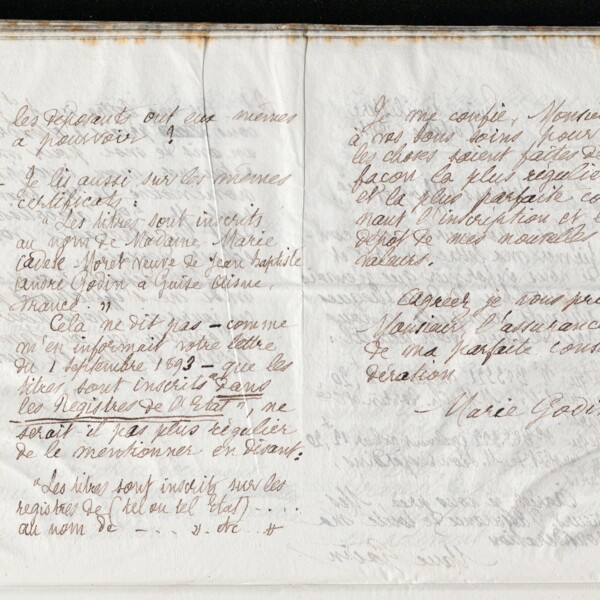 les déposants ont eux mêmes
à pourvoir ?
– Je lis aussi sur les mêmes
certificats :
"Les titres sont inscrits
au nom de Madame Marie
Cadale Moret veuve de Jean Baptiste
André Godin à Guise Aisne,
France."
Cela ne dit pas – comme
m'en informait votre lettre
du 1 septembre 1893 – que les
titres sont inscrits "dans
les Registres de l'Etat", ne
serait il pas plus régulier
de le mentionner en disant:
"Les titres sont inscrits sur les
registres de (tel ou tel Etat) ....
au nom de - .... ". etc "
Je me confie, Monsie
à vos bons soins pour
les choses soient faites de
façon la plus réguliè
et la plus parfaite co
nant l'inscription et l
dépôt de mes nouvelles
valeurs.
Agréez je vous pri
Monsieur l'assurance
de ma parfaite cons
dération
– Marie Godin